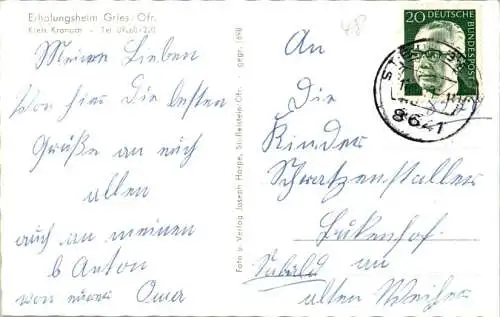 Erholungsheim Gries, Ofr.
Kreis Kronach - Tel.
48
Meine Lieben
Von hier die besten
Grüße an euch
allen
auch an meinen
b Anton
von eurer Oma
Foto u. Verlag Joseph Harpe, Staffelstein-Ofr. gegr. 1898
20 DEUTSCHE BUNDESPOST
8621
An
Die
Kinder
Schwatzenstaller
an
alten Weiher